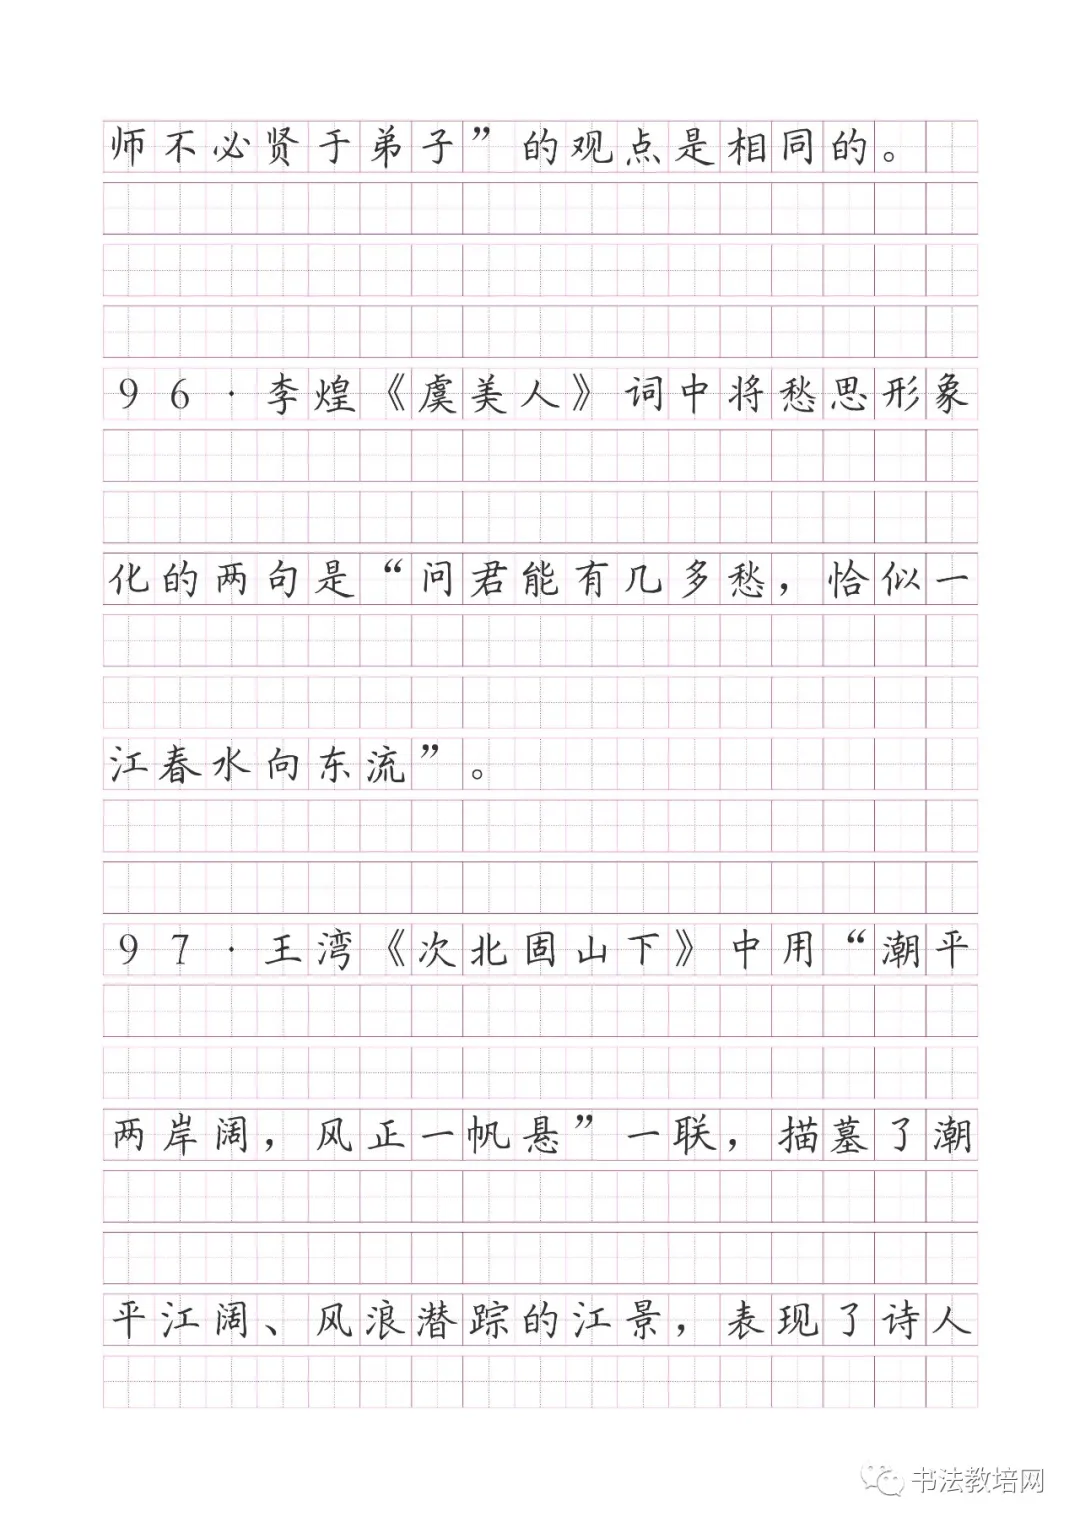 师不必贤于弟子”的观点是相同的。
96·李煌《虞美人》词中将愁思形象
化的两句是“问君能有几多愁，恰似一
江春水向东流”。
97·王湾《次北固山下》中用“潮平
两岸阔，风正一帆悬”一联，描墓了潮
平江阔、风浪潜踪的江景，表现了诗人
书法教培网